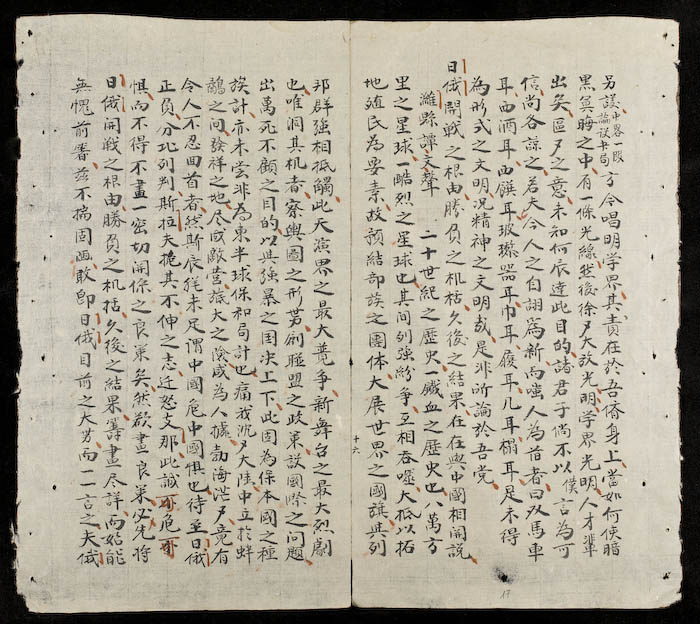 另議中畧一段論設書局方今唱明學界其責在於吾儕身上當如何使暗
黑冥晦之中有一條光線然後徐〻大放光明學界光明人才輩
出矣區〻之意未知何辰達此目的諸君子倘不以僕言為可
信尚各諒之若夫今人之自詡為新而嗤人為舊者曰双馬車
耳西酒耳西饌耳玻璨器耳巾耳履耳几耳榻耳足未得
為形式之文明况精神之文明哉是非所論於吾党
日俄開戰之根由勝負之机枯久後之結果在在與中國相關說
濰縣譚文聲 二十世紀之歷史一鐵血之歷史也八萬方
里之星球一酷烈之星球也其间列強紛爭互相吞噬大抵以拓
地殖民為要素故預結部族之團体大展世界之國旗與列
十六
17
邦群強相抵觸此天演界之最大競争新舞台之最大烈劇
也唯洞其机者察輿圖之形势創聯盟之政策設國際之问題
出萬死不顧之目的以與強暴之国决上下此固為保本國之種
族計亦未尝非為東半球保和局計也痛我沉〻大陸中立於蚌
鷸之间發祥之地尽成敵营旅大之險咸為人據勃海茫〻竟有
令人不忍囬首者然斯辰猶未足谓中國危中國惧也待至日俄
正負分北列判斯拉夫挽其不伸之志迁怒支那此誠可危可
惧而不得不畫一密切開保之良策矣然欲畫良策必先將
日俄開戰之根由勝負之机枯久後之結果籌畫尽詳而始能
無愧前箸兹不揣固陋敢即日俄目前之大势而一二言之夫俄